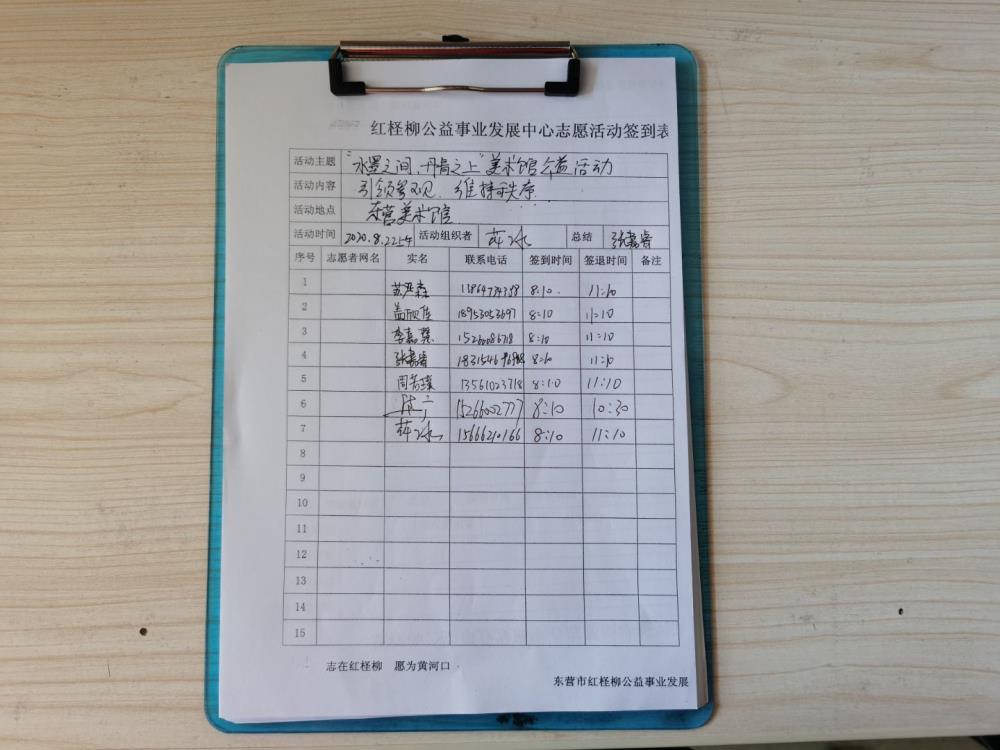 红柽柳公益事业发展中心志愿活动签到表
活动主题 “水墨之间、丹青之上”美术馆公益活动
活动内容 引领参观、维持秩序.
活动地点 东营美术馆
活动时间 2020.8.22 活动组织者 总结 张嘉睿
序号 志愿者网名 实名 联系电话 签到时间 签退时间 备注
1 8:10. 11:10
2 盖欣佳 18953053697 8:10 11:10
3 李嘉 15260086718 8:10 11:10
4 张嘉睿 8:10 11:10
5 周若臻 13561023718 8:10 11:10
6 15266002777 8:10 10:30
7 15666210166 8:10 11:10
8
9
10
11
12
13
14
15
志在红柽柳 愿为黄河口
东营市红柽柳公益事业发展